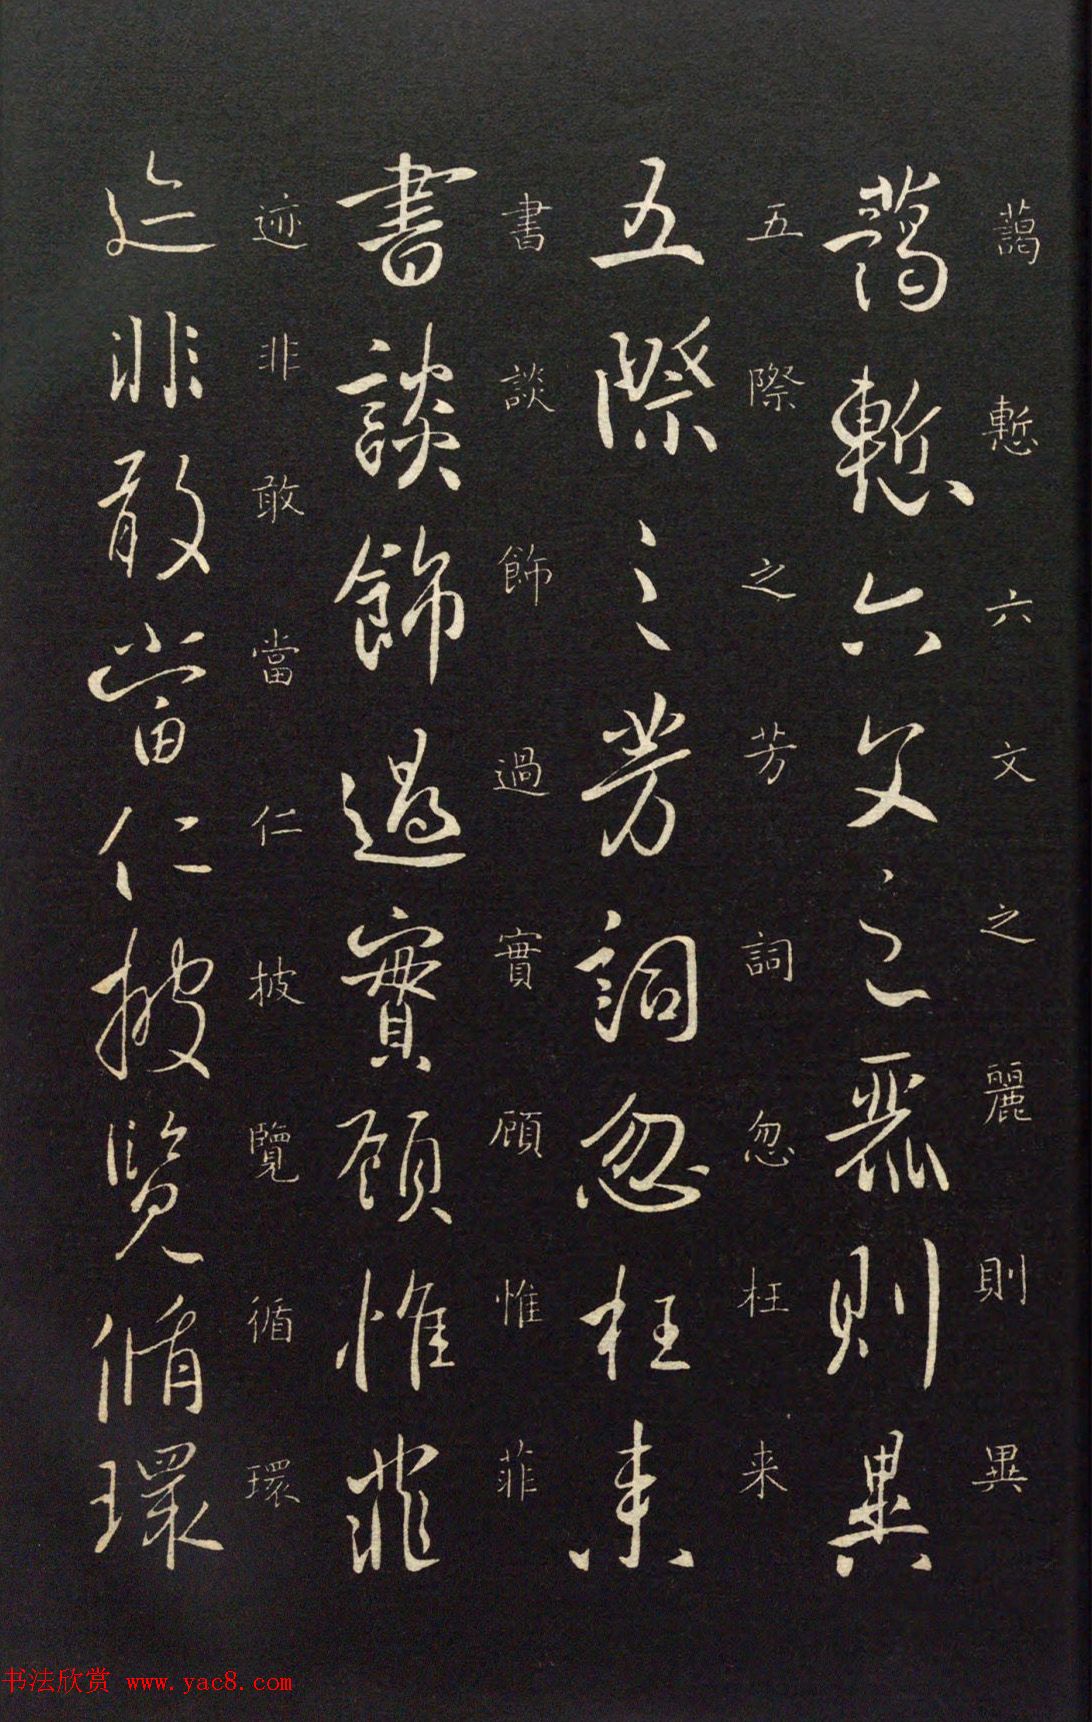 藹慙六文之麗則異
藹慙六文之麗則異
五際之芳詞忽枉来
五際之芳詞忽枉来
書談飾過實顧惟菲
書談飾過實顧惟菲
迹非敢當仁披覽循環
迹非敢當仁披覽循環
书法欣赏 www.yac8.com